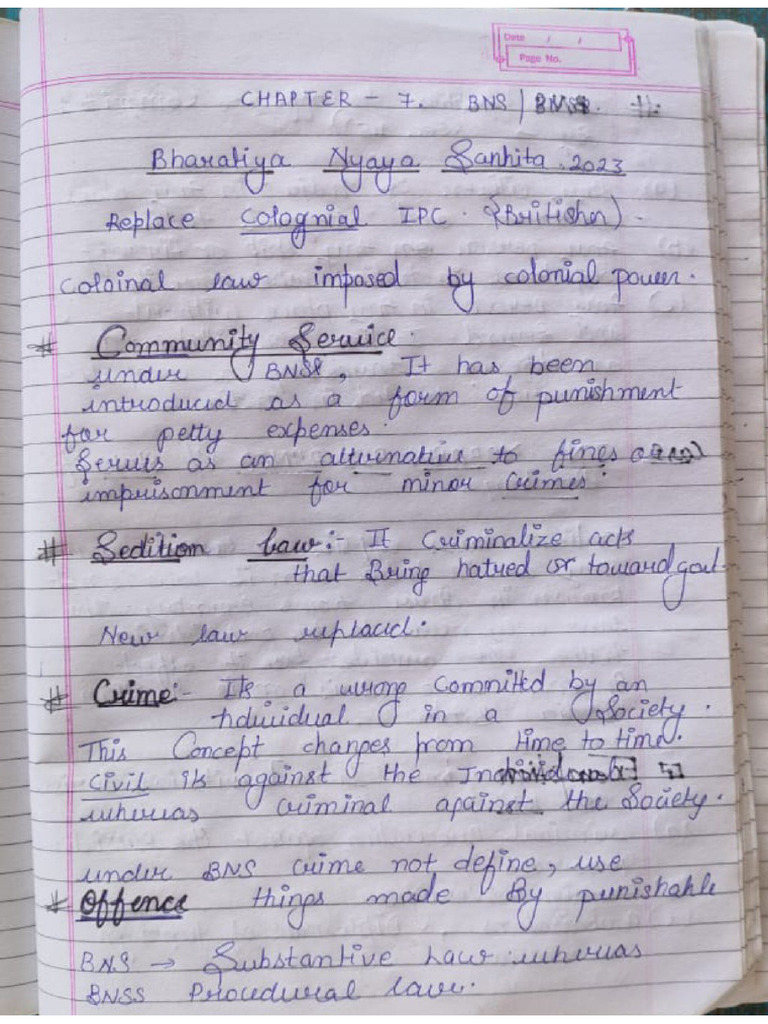 Date / /
Page No.
CHAPTER - 7. BNS /
Bharatiya Nyaya Sanhita. 2023
Replace Colognial IPC. {Britisher).
Coloinal law imposed by colonial power.
* Community Service.
under BNSS, It has been
introduced as a form of punishment
for petty expenses.
Serves as an alternative to fines
imprisonment for minor crimes.
* Sedition Law:- It Criminalize acts
that Bring hatred or toward govt.
New law replaced.
* Crime:- Its a wrong Committed by an
individual in a Society.
This Concept changes from time to time.
Civil is against the
whereas criminal against the Society.
under BNS crime not define, use
* Offence things made By punishable
BNS → Substantive Law whereas
BNSS Procedural law.